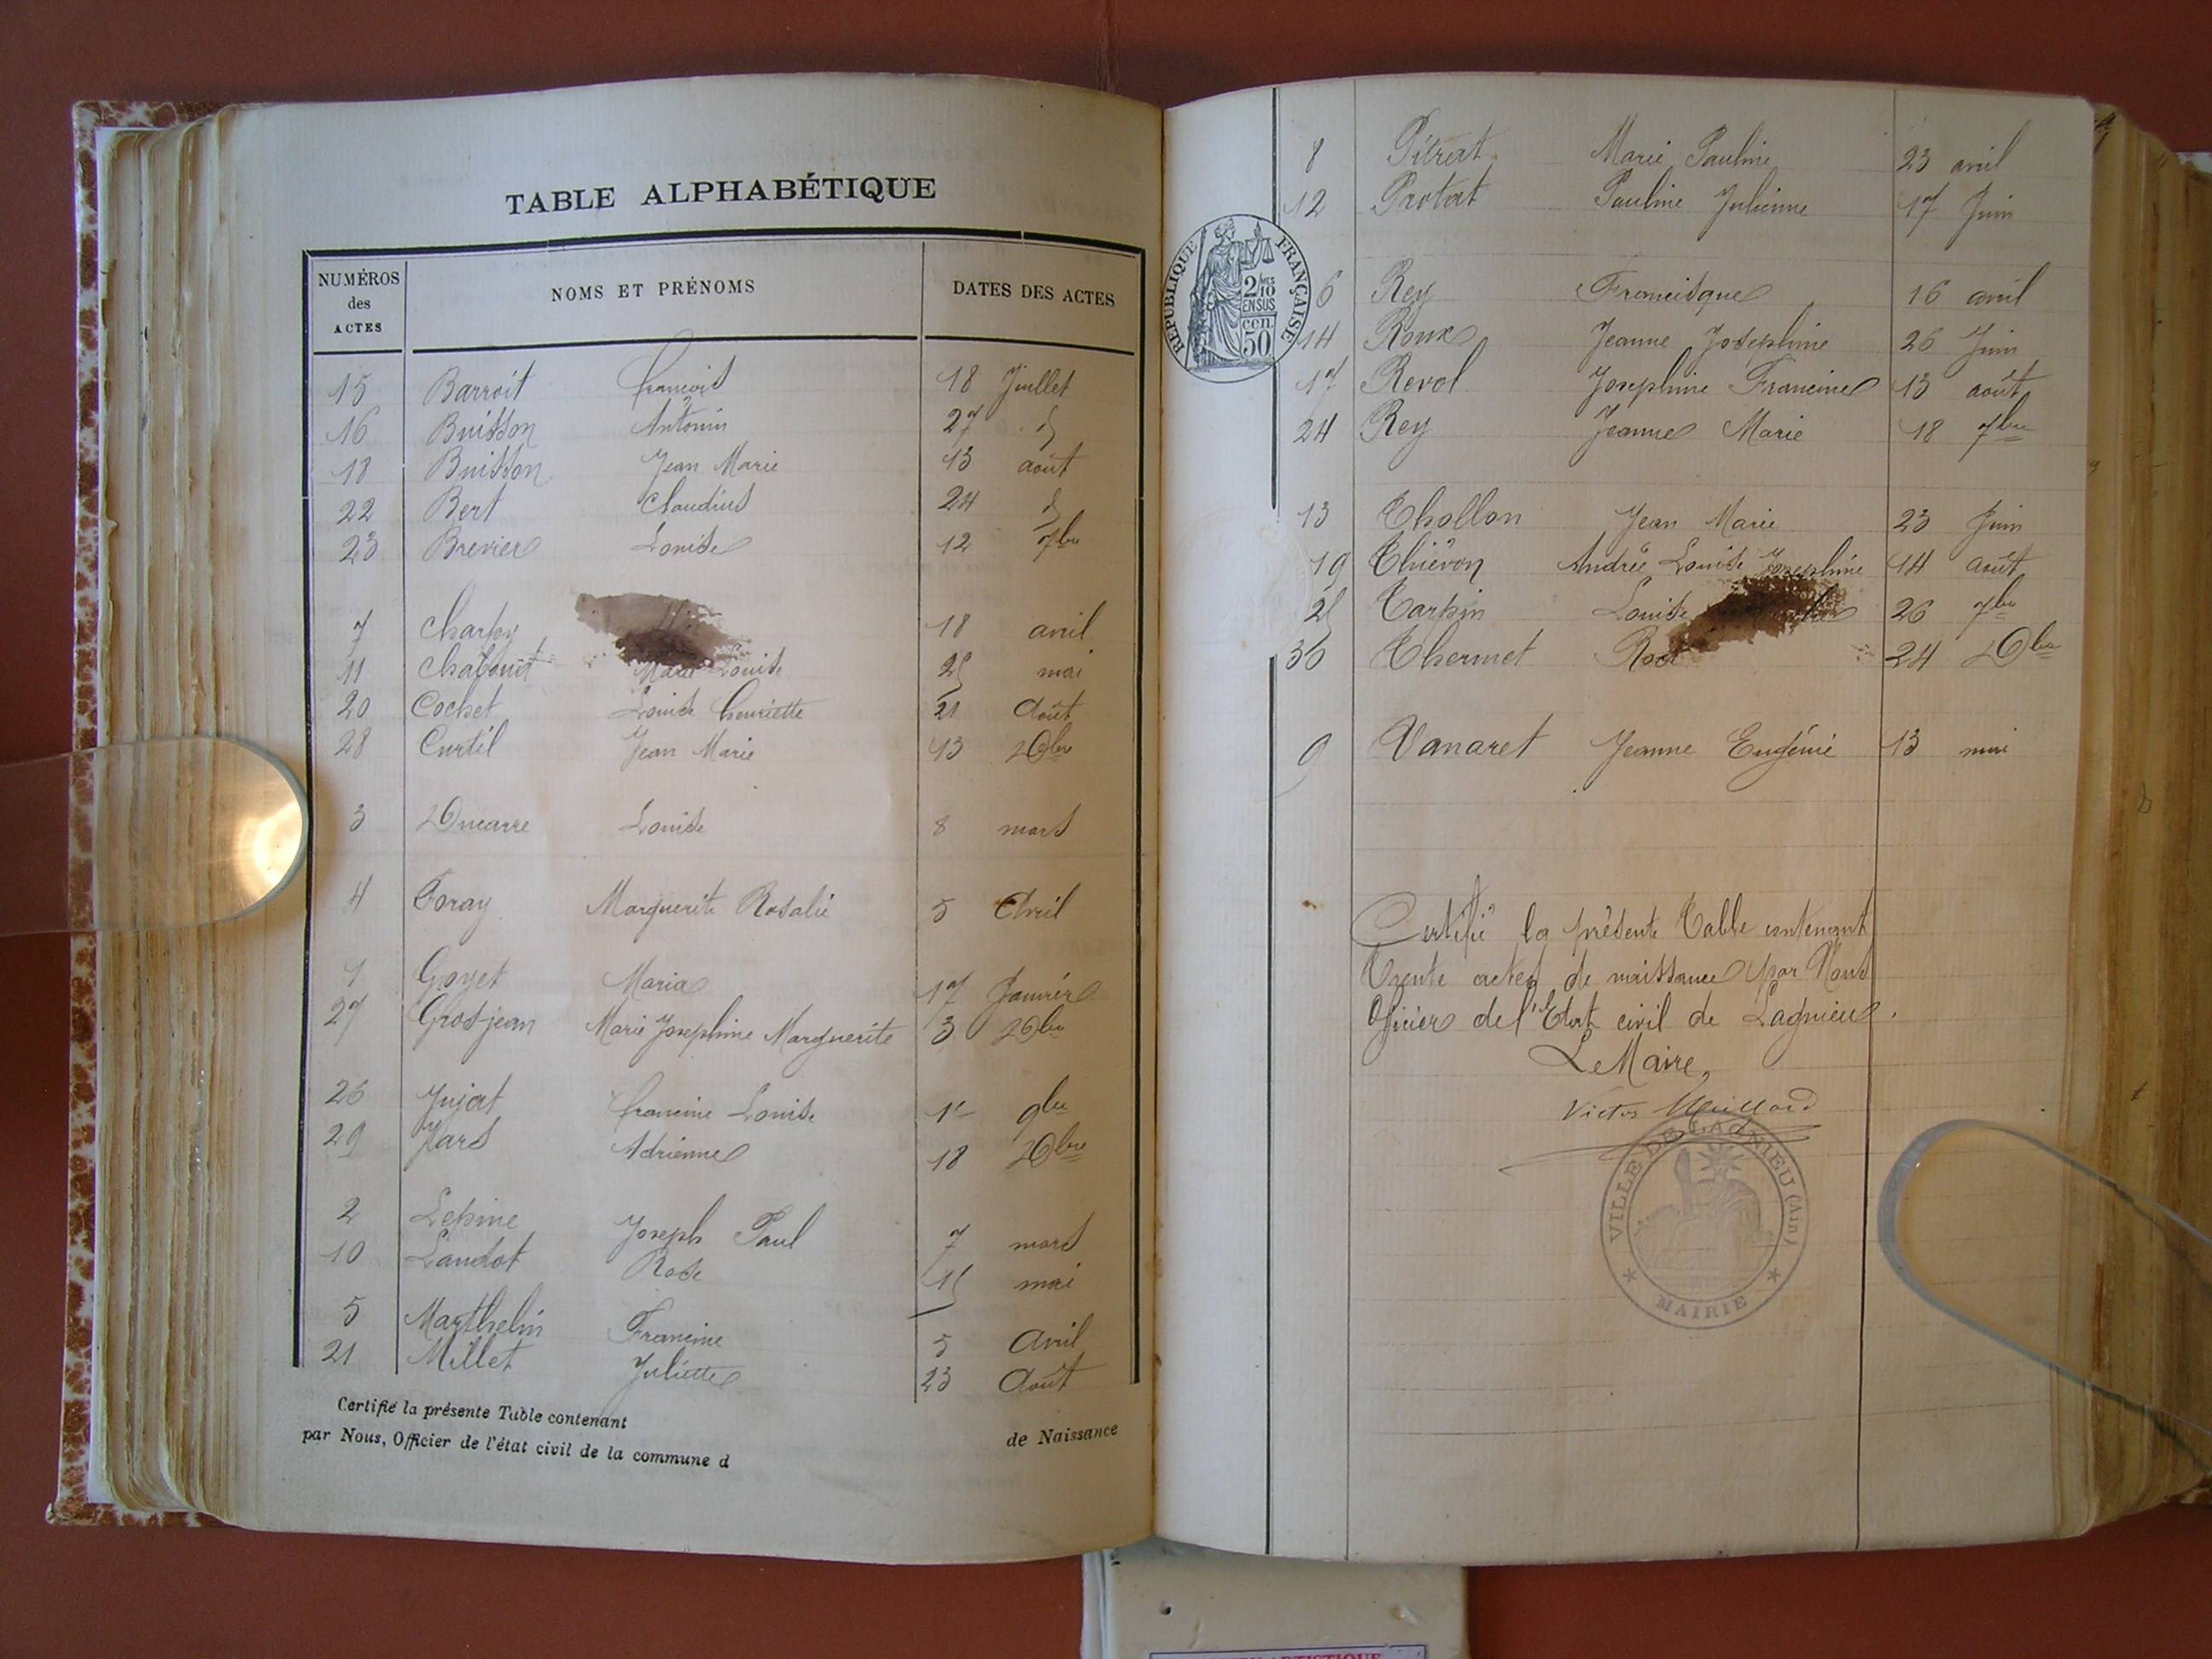 TABLE ALPHABÉTIQUE
NUMÉROS des ACTES NOMS ET PRÉNOMS DATES DES ACTES
15 Barroit François 18 Juillet
16 Buisson Antonin 27 "
18 Buisson Jean Marie 13 août
22 Bert Claudius 24 "
23 Brevier Louise 12 7bre
7 Charpy 18 avril
11 Chabout Marie Louise 25 mai
20 Cochet Louise henriette 21 Août
28 Curtil Jean Marie 13 Xbre
3 Ducarre Louise 8 mars
4 Foray Marguerite Rosalie 5 Avril
1 Goyet Maria 17 Janvier
27 Gros-jean Marie Josephine Marguerite 3 Xbre
26 Jujat francine Louise 1er 9bre
29 Jars Adrienne 18 Xbre
2 Lepine Joseph Paul 7 mars
10 Laudot Rose 15 mai
5 Marthelin Francine 5 Avril
21 Millet Juliette 23 Août
Certifié la présente Table contenant de Naissance
par Nous, Officier de l'état civil de la commune d
8 Pitrat Marie Pauline 23 avril
12 Protat Pauline Julienne 17 Juin
RÉPUBLIQUE FRANÇAISE
2/10 EN SUS
50 cen.
6 Rey Francisque 16 avril
14 Roux Jeanne Josephine 26 Juin
17 Revol Josephine Francine 13 août
24 Rey Jeanne Marie 18 7bre
13 Thollon Jean Marie 23 Juin
19 Thiévon Andrée Louise Josephine 14 août
25 Tarpin Louise 26 7bre
30 Thermet Rose 24 Xbre
9 Vanaret Jeanne Eugénie 13 mai
Certifié la présente Table contenant
Trente actes de naissance par Nous
Officier de l'Etat civil de Lagnieu.
Le Maire,
Victor
VILLE DE LAGNIEU (Ain)
MAIRIE